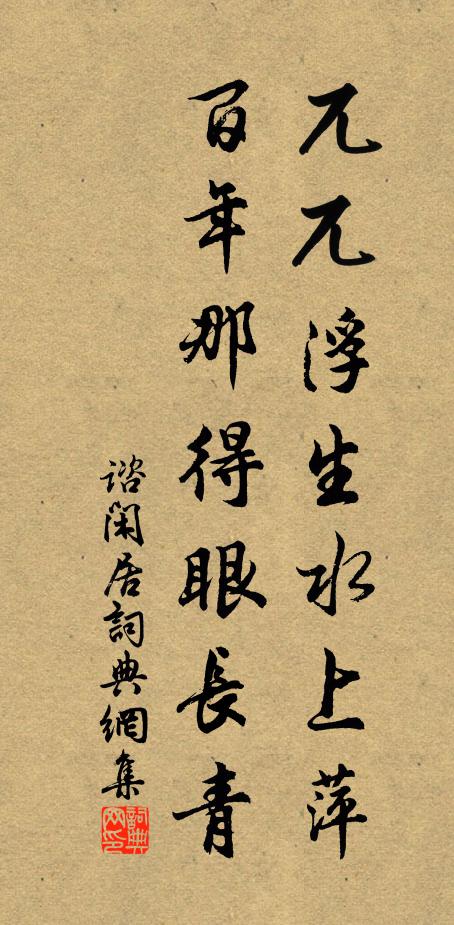 兀兀浮生水上萍
百年那得眼長青
諮閑居詞典網集
詞典網印